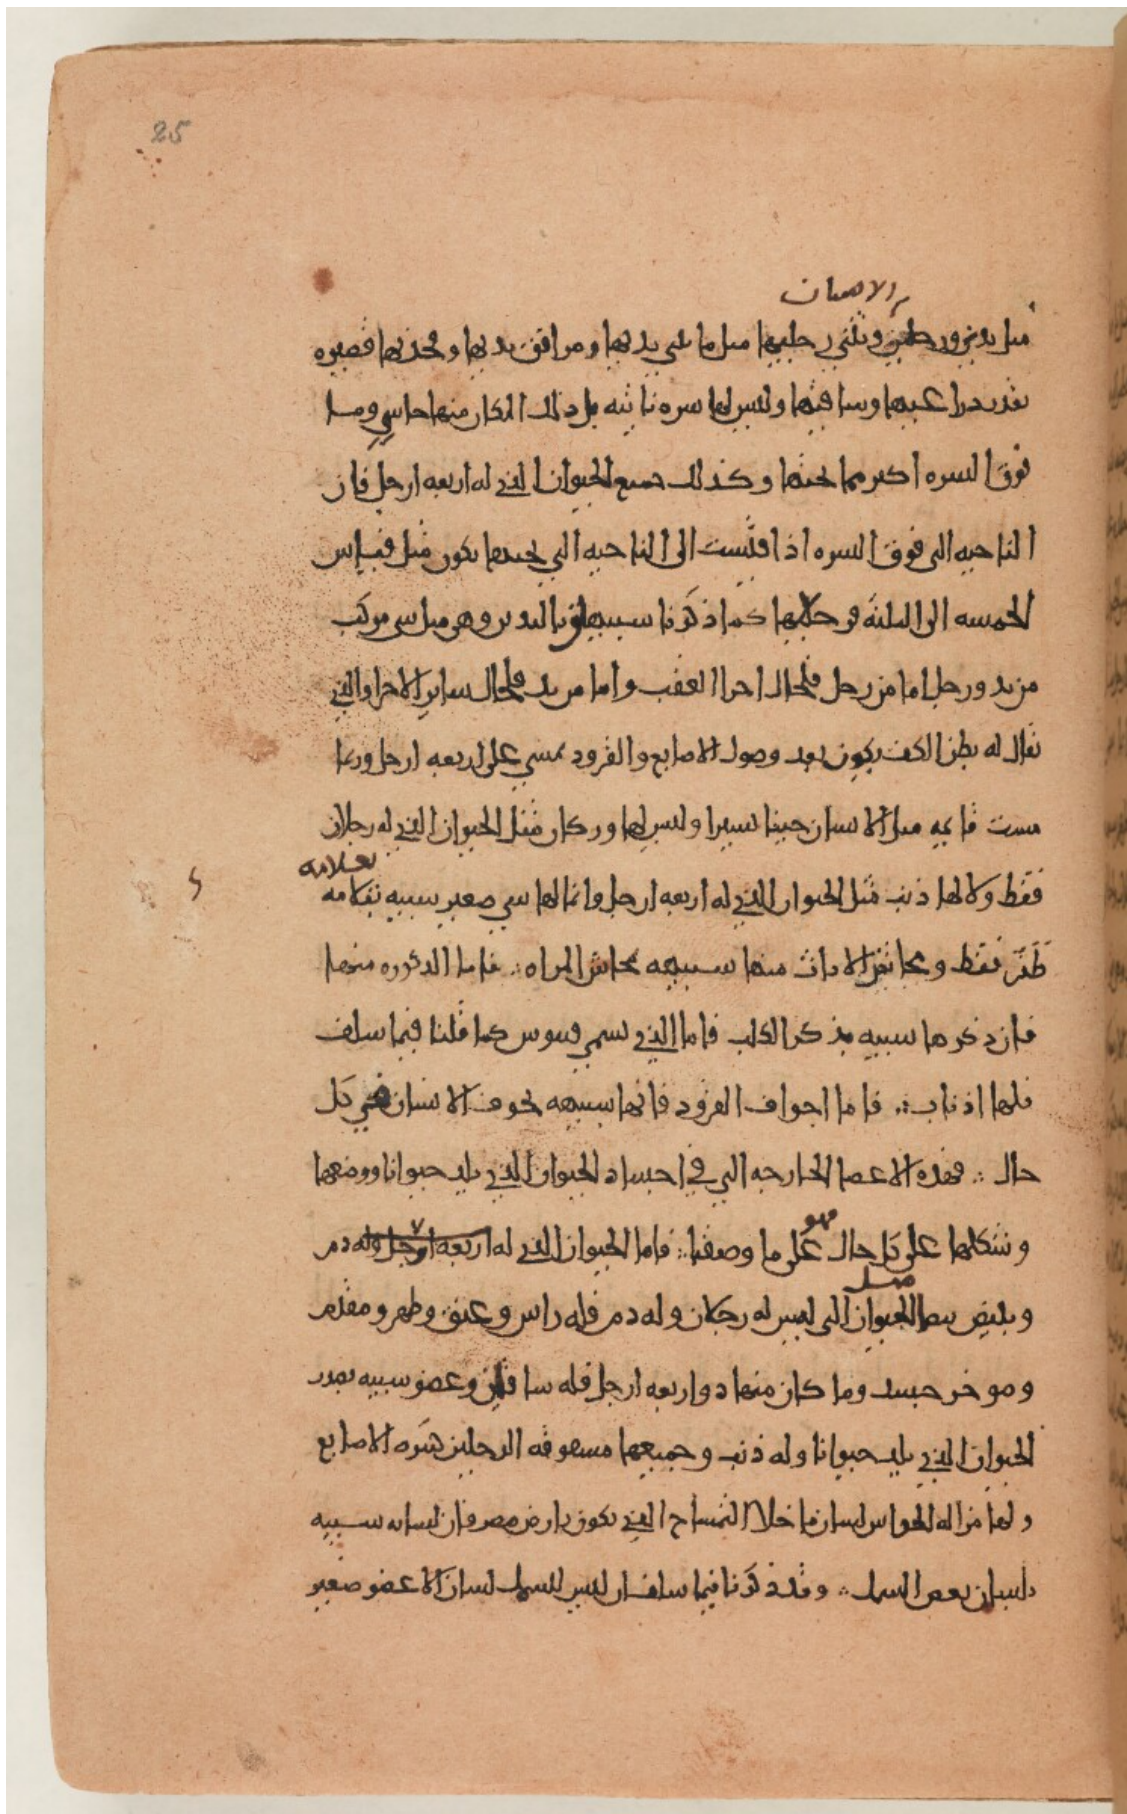 25
الانسان
مثل يدين ورجلين وتثني رجليها مثل ما تثني يديها ومرافق يديها وفخذيها قصيره
بقدر ذراعيها وساقيها وليس لها سره ناتيه بل ذلك المكان منها جاسي وما
فوق السره اكبر مما تحتها وكذلك جميع الحيوان الذي له اربعه ارجل فان
الناحيه التي فوق السره اذا اقيست الى الناحيه التي تحتها يكون مثل قياس
الخمسه الى الثلثه ورجليها كما ذكرنا شبيهان باليدين وهي مثل شي مركب
من يد ورجل اما من رجل فلحال اخر العقب واما من يد فلحال ساير الاجزا والذي
يقال له بطن الكف يكون بعد وصول الاصابع والقرود تمشي على اربعه ارجل وربما
مشت قايمه مثل الانسان حينا يسيرا وليس لها ورك كان مثل الحيوان الذي له رجلان
بعلامه
فقط ولا لها ذنب مثل الحيوان الذي له اربعه ارجل وانما لها شي صغير شبيه بقلامه
ظفر فقط ومحاش الاناث منها شبيهه بمحاش المراه فاما الذكوره منها
فان ذكرها شبيه بذكر الكلب فاما الذي تسمى قبوس كما قلنا فيما سلف
فلها اذناب فاما اجواف القرود فانها شبيهه بجوف الانسان في كل
حال فهذه الاعضا الخارجه التي في اجساد الحيوان الذي يلد حيوانا ووضعها
وشكلها على كل حال فهو على ما وصفنا فاما الحيوان الذي له اربعه ارجل وله دم
مثل
ويبيض بيضا الحيوان التي ليس له رجلان وله دم فله راس وعنق وظهر ومقدم
وموخر جسد وما كان منها ذو اربعه ارجل فله ساقين وعضو شبيه بصدر
الحيوان الذي يلد حيوانا وله ذنب وجميعها مشقوقه الرجلين كثيره الاصابع
ولها من اله الحواس لسان ما خلا التمساح الذي يكون بارض مصر فان لسانه شبيه
بلسان بعض السمك وقد ذكرنا فيما سلف ان ليس للسمك لسان الا عضو صغير